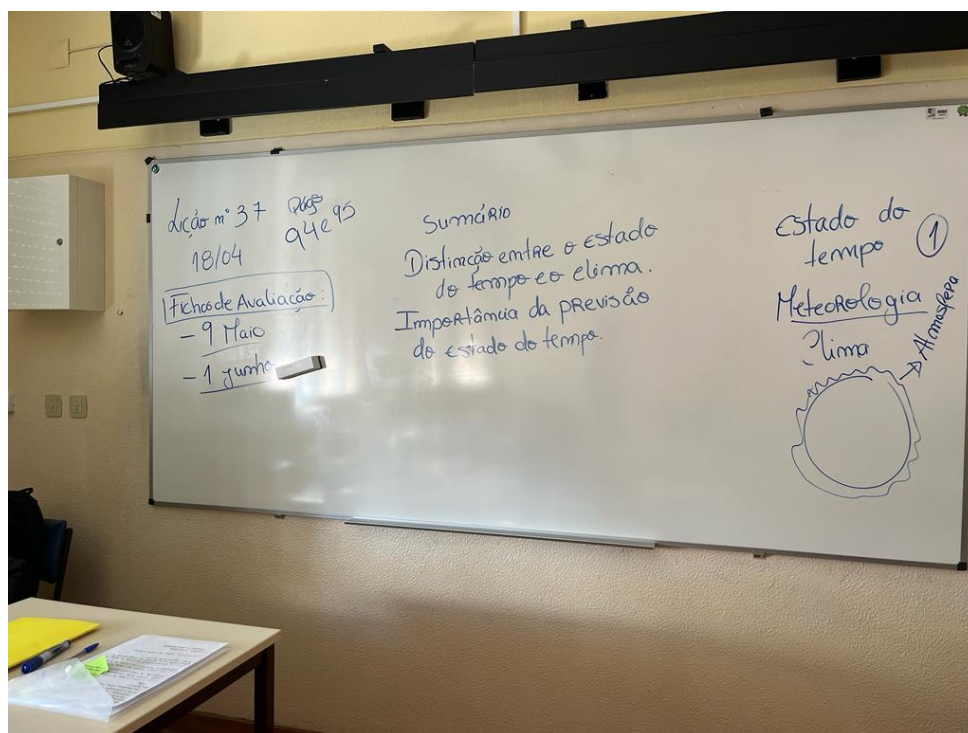 Lição nº 37
Págs
94 e 95
18/04
Fichas de Avaliação:
- 9 Maio
- 1 junho
Sumário
Distinção entre o estado
do tempo e o clima.
Importância da previsão
do estado do tempo.
Estado do
tempo
1
Meteorologia
Clima
Atmosfera